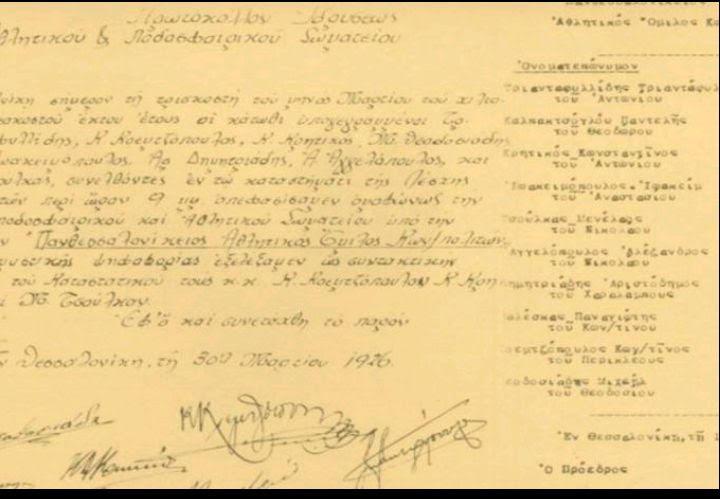 Πρωτόκολλον Ιδρύσεως
θλητικού & Ποδοσφαιρικού Σωματείου
σήμερον τη τριακοστή του μηνός Μαρτίου του χιλιο
ακοστού έκτου έτους οι κάτωθι υπογεγραμμένοι Τρ.
φυλλίδης, Κ. Κρεμτζόπουλος, Κ. Κρητικός, Μ. Θεοδοσιάδης
ωακειμόπουλος, Αρ. Δημητριάδης, Α. Αγγελόπουλος, και
συνελθόντες εν τω καταστήματι της Λέσχης
των περί ώραν 9 μμ. απεφασίσαμεν ομοφώνως την
ποδοσφαιρικού και Αθλητικού Σωματείου υπό την
ν "Πανθεσσαλονίκειος Αθλητικός Όμιλος Κων/πολιτών
μυστικής ψηφοφορίας εξελέξαμεν ως συντακτικήν
του Καταστατικού τους κ.κ. Κ. Κρεμτζόπουλον Κ Κρη
Μ. Τσούλκαν.
Εφ' ό και συνετάχθη το παρόν
ν Θεσσαλονίκη, τη 30η Μαρτίου 1926.
Ἀθλητικός Ὅμιλος Κω
Ὀνοματεπώνυμον
Τριανταφυλλίδης Τριαντάφυλ
τοῦ Ἀντωνίου
Καλπακτσόγλου Παντελῆς
τοῦ Θεοδώρου
Κρητικός Κωνσταντῖνος
τοῦ Ἀντωνίου
Ἰωακειμόπουλος Ἰωακείμ
τοῦ Ἀναστασίου
Τσούλκας Μενέλαος
τοῦ Νικολάου
Ἀγγελόπουλος Ἀλέξανδρος
τοῦ Νικολάου
ημητριάδης Ἀριστόδημος
τοῦ Χαραλάμπους
Παναγιώτης
τοῦ Κων/τίνου
εμτζόπουλος Κων/τῖνος
τοῦ Περικλέους
εοδοσιάδης Μιχαήλ
τοῦ Θεοδοσίου
Ἐν Θεσσαλονίκῃ, τῇ 1
Ὁ Πρόεδρος